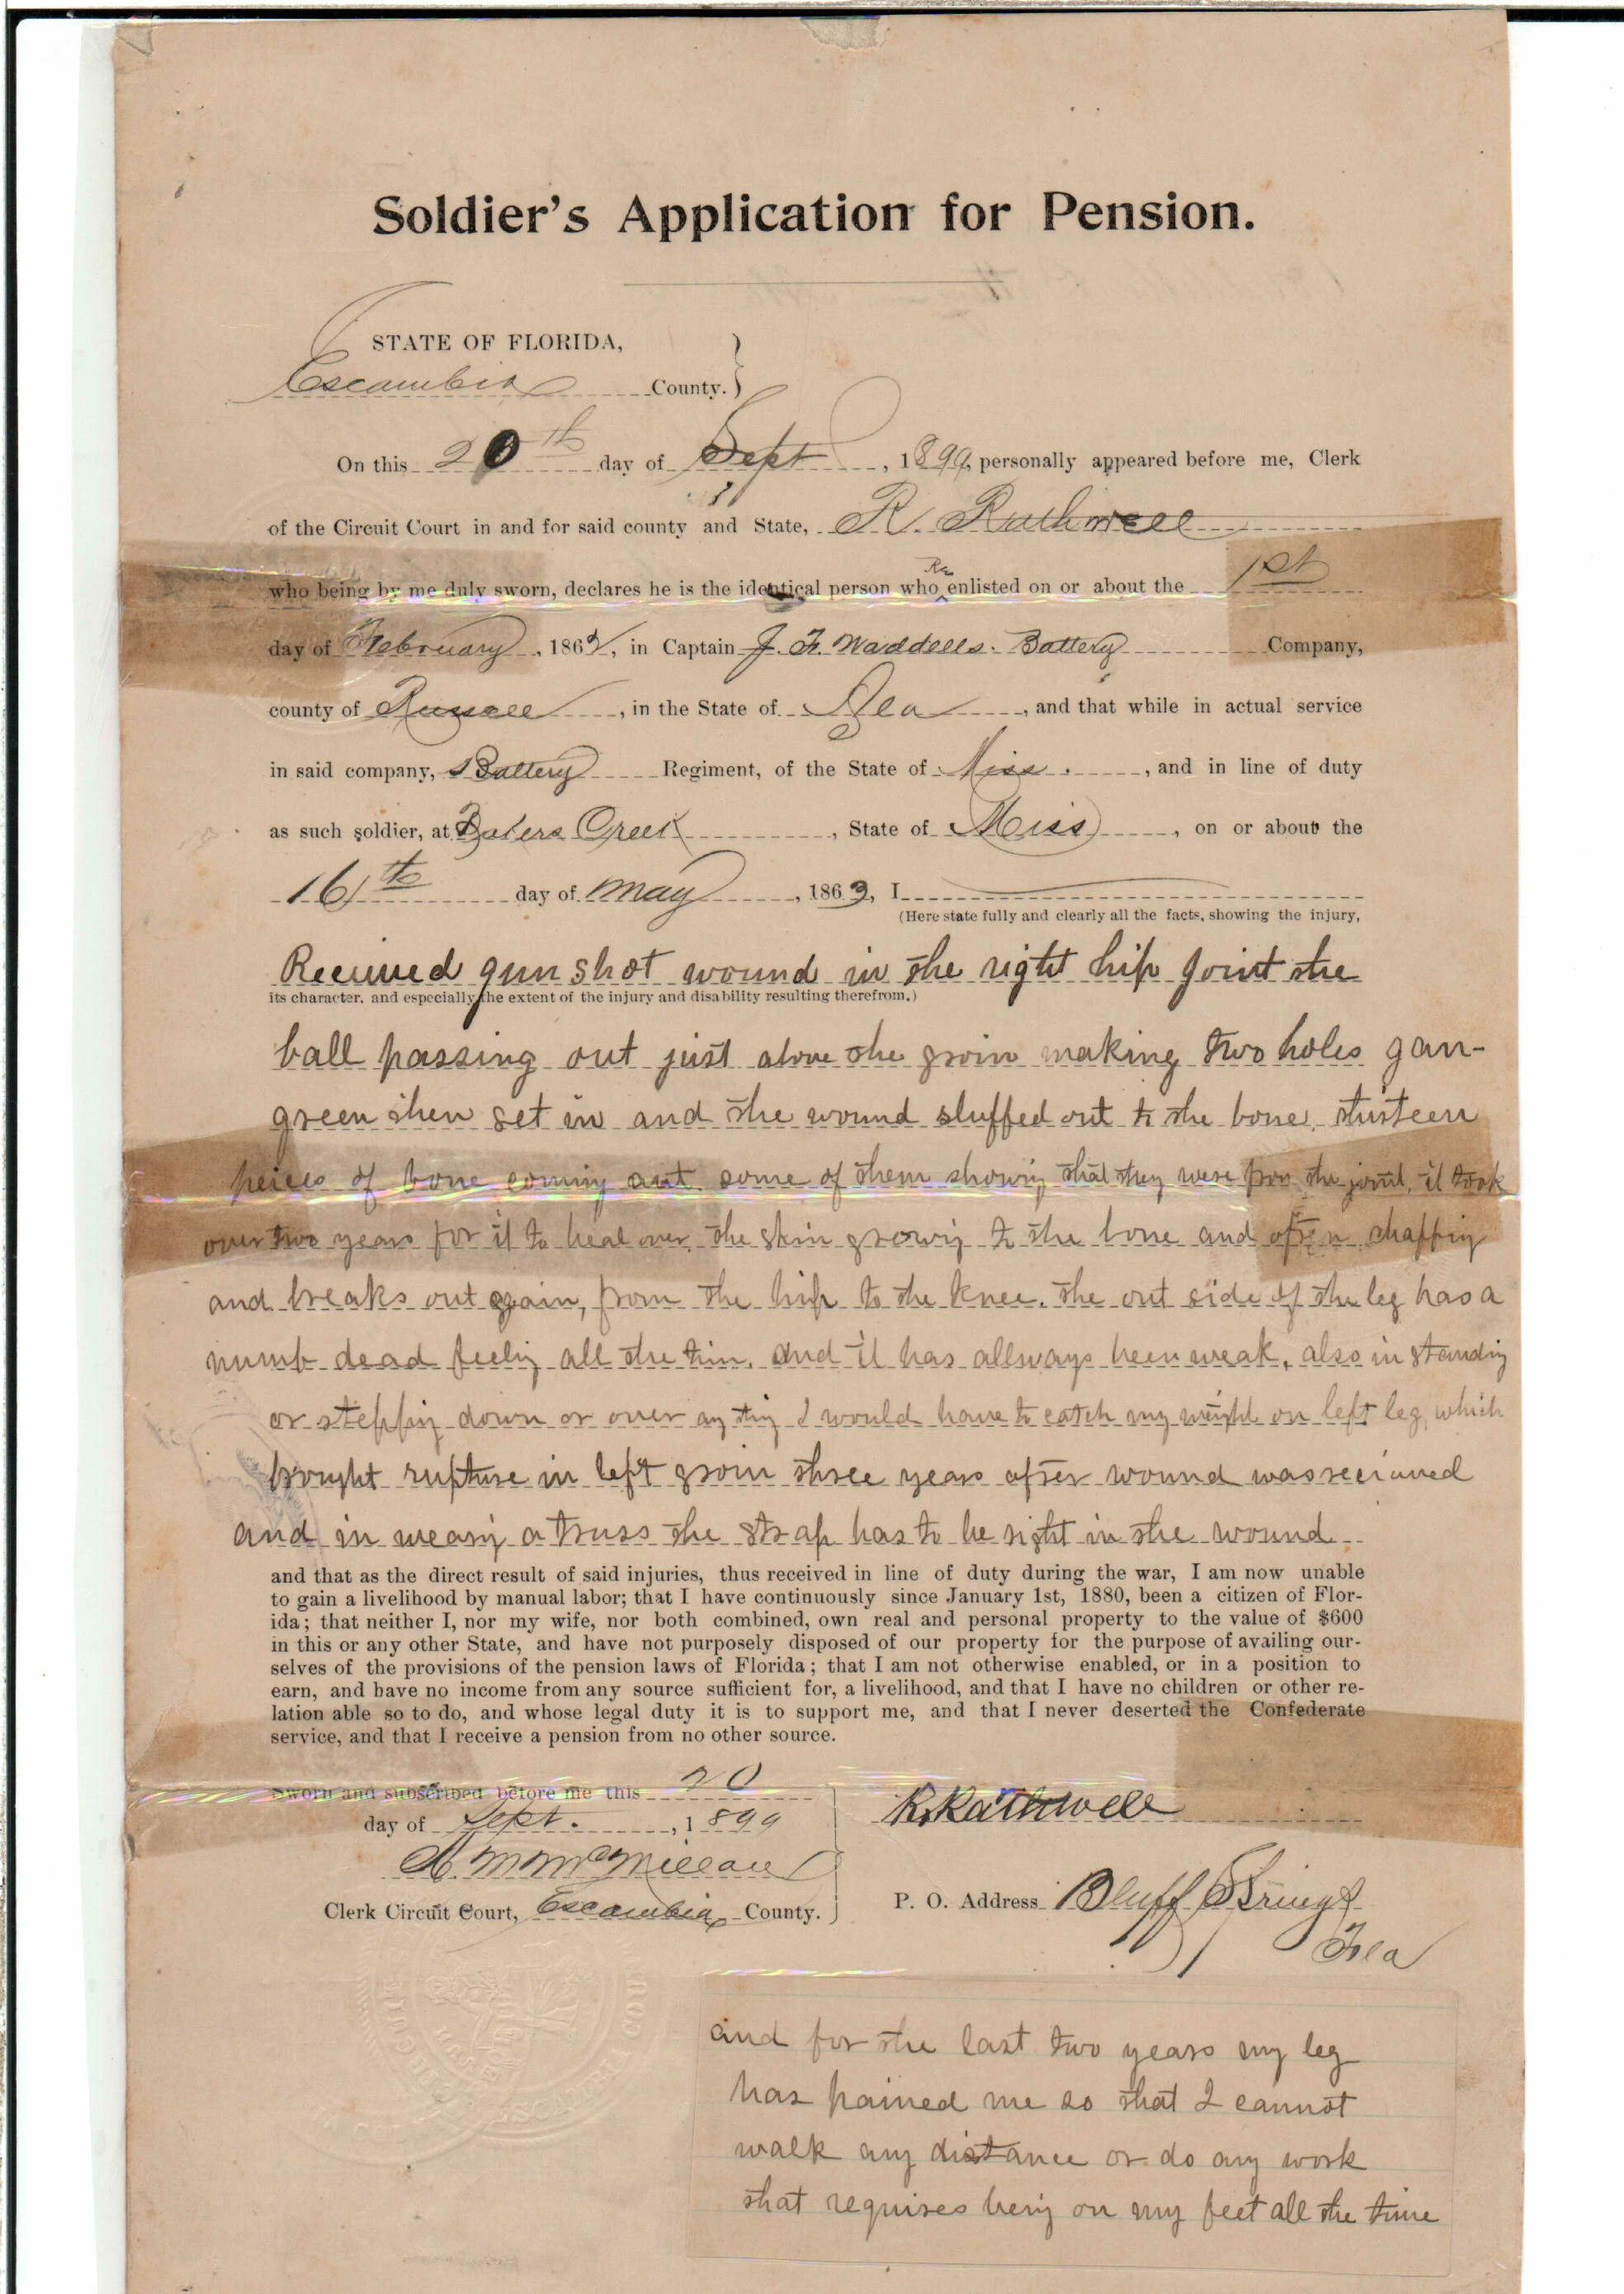 Soldier's Application for Pension.
STATE OF FLORIDA,
Escambia County. }
On this 20th day of Sept, 1899, personally appeared before me, Clerk
of the Circuit Court in and for said county and State, R. Rathwell
Re
who being by me duly sworn, declares he is the identical person who ^ enlisted on or about the 1st
day of February, 1863, in Captain J. F. Waddells. Battery Company,
county of Russell, in the State of Ala, and that while in actual service
in said company, Battery Regiment, of the State of Miss., and in line of duty
as such soldier, at Bakers Creek, State of Miss, on or about the
16th day of May, 1863, I
(Here state fully and clearly all the facts, showing the injury,
Received gun shot wound in the right hip joint the
its character, and especially the extent of the injury and disability resulting therefrom.)
ball passing out just above the groin making two holes gan-
green then set in and the wound sluffed out to the bone, thirteen
peices of bone coming out some of them showing that they were from the joint, it took
over two years for it to heal over, the skin growing to the bone and often chapping
and breaks out again, from the hip to the knee. the out side of the leg has a
numb dead feeling all the tim, and it has allways been weak, also in standing
or stepping down or over any thing I would have to catch my weight on left leg, which
brought rupture in left groin three years after wound was received
and in wearing a truss the strap has to be right in the wound
and that as the direct result of said injuries, thus received in line of duty during the war, I am now unable
to gain a livelihood by manual labor; that I have continuously since January 1st, 1880, been a citizen of Flor-
ida; that neither I, nor my wife, nor both combined, own real and personal property to the value of $600
in this or any other State, and have not purposely disposed of our property for the purpose of availing our-
selves of the provisions of the pension laws of Florida; that I am not otherwise enabled, or in a position to
earn, and have no income from any source sufficient for, a livelihood, and that I have no children or other re-
lation able so to do, and whose legal duty it is to support me, and that I never deserted the Confederate
service, and that I receive a pension from no other source.
Sworn and subscribed before me this 20
day of Sept., 1899
R. Rathwell
A. M. McMillan
Clerk Circuit Court, Escambia County. }
P. O. Address Bluff Springs
Fla
and for the last two years my leg
has pained me so that I cannot
walk any distance or do any work
that requires being on my feet all the time